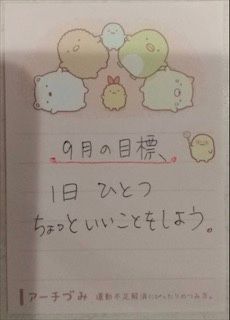 9月の目標、
1日 ひとつ
ちょっといいことをしよう。
アーチづみ 運動不足解消にぴったりのつみ方。